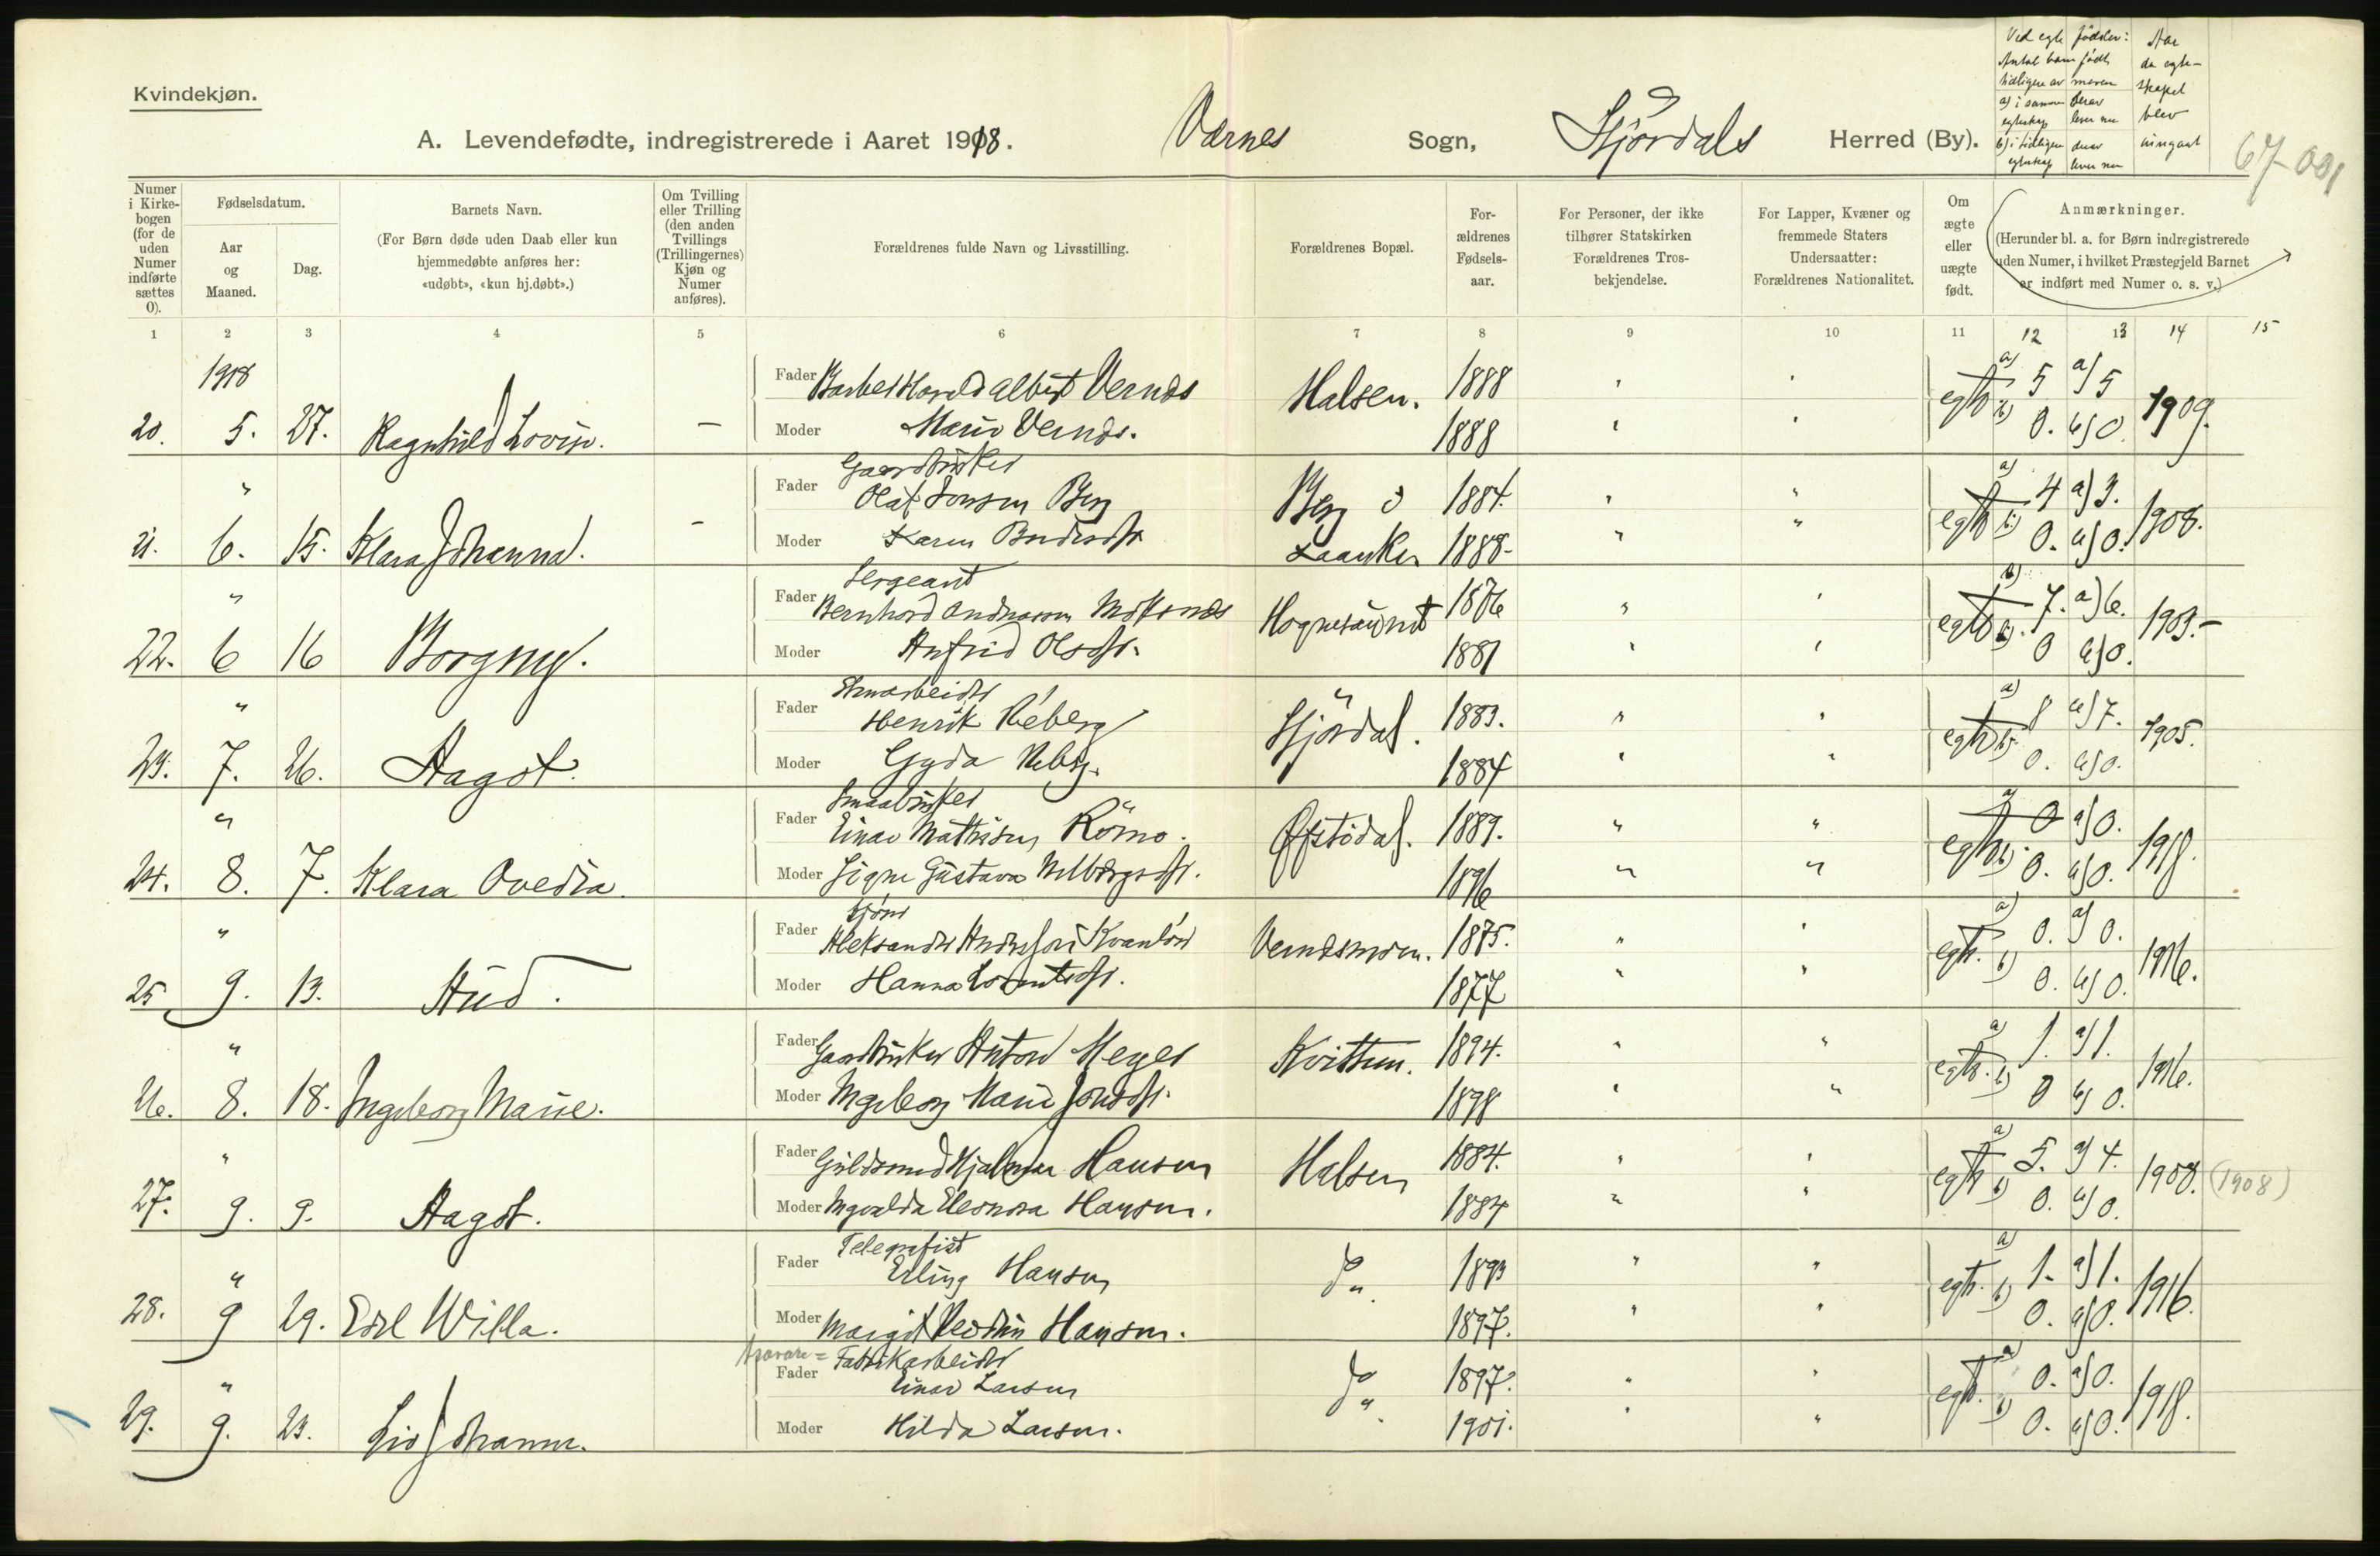 Kvindekjøn.
A. Levendefødte, indregistrerede i Aaret 1918. Værnes Sogn, Stjørdals Herred (By).
Ved egte fødsler:
Antal barn født
tidligere av moren
a) i samme egteskap
derav lever nu
b) i tidligere egteskap
derav lever nu
Aar da egteskapet blev inngaat
67-001
Numer i Kirkebogen (for de uden Numer indførte sættes 0).
Fødselsdatum.
Aar og Maaned.
Dag.
Barnets Navn.
(For Børn døde uden Daab eller kun hjemmedøbte anføres her: «udøbt», «kun hj.døbt».)
Om Tvilling eller Trilling (den anden Tvillings (Trillingernes) Kjøn og Numer anføres).
Forældrenes fulde Navn og Livsstilling.
Forældrenes Bopæl.
Forældrenes Fødselsaar.
For Personer, der ikke tilhører Statskirken Forældrenes Trosbekjendelse.
For Lapper, Kvæner og fremmede Staters Undersaatter: Forældrenes Nationalitet.
Om ægte eller uægte født.
Anmærkninger.
(Herunder bl. a. for Børn indregistrerede uden Numer, i hvilket Præstegjeld Barnet er indført med Numer o. s. v.)
1 2 3 4 5 6 7 8 9 10 11 12 13 14 15
1918
Fader Barber Harald Albert Vernes Halsen. 1888 " " egte a) 5 a) 5 1909.
20. 5. 27. Ragnhild Lovise. – Moder Marie Vernes. 1888 " " b) 0. b) 0.
" Fader Gaardbruker Olaf Jonsen Berg Berg i Laanke 1884. " " egte a) 4 a) 3. 1908.
21. 6. 15. Klara Johanna. – Moder Karen 1888. " " b) 0. b) 0.
" Fader Sergeant Bernhard Andreassen 1876 " " egte a) 7. a) 6. 1903.–
22. 6 16 Borgny. Moder Anfrid Olsdtr. 1881 " " b) 0 b) 0.
" Fader Henrik Reberg Stjørdal. 1883. " " egte a) 8 a) 7. 1905.
23. 7. 26. Aagot. Moder Gyda Reberg. 1884 " " b) 0. b) 0.
" Fader Smaabruker Einar Mathisen Römo. 1889. " " egte a) 0 a) 0. 1918.
24. 8. 7. Klara Ovedia. Moder Signe Gustava 1896 " " b) 0. b) 0.
" Fader Aleksander 1875. " " egte. a) 0. a) 0. 1916.
25 9. 13. Aud. Moder Hanna Lorentsdtr. 1877 " " b) 0. b) 0.
" Fader Gaardbruker Anton Meyer Kvittum. 1894. " " egte. a) 1. a) 1. 1916.
26. 8. 18. Ingeborg Marie. Moder Ingeborg Marie Jonsdtr. 1898 " " b) 0 b) 0.
" Fader Guldsmed Hjalmar Hansen Halsen 1884. " " egte a) 5. a) 4. 1908. (1908)
27. 9. 9. Aagot. Moder Ingvalda Eleonora Hansen. 1884 " " b) 0. b) 0.
" Fader Telegrafist Erling Hansen do. 1893 " " egte. a) 1. a) 1. 1916.
28. 9 29. Edel Willa. Moder Margit Hansen. 1897. " " b) 0. b) 0.
" Fader Fabrikarbeider Einar Larsen do. 1897. " " egte. a) 0. a) 0. 1918.
29. 9. 23. Liv Johanne. Moder Hilda Larsen. 1901. " " b) 0. b) 0.